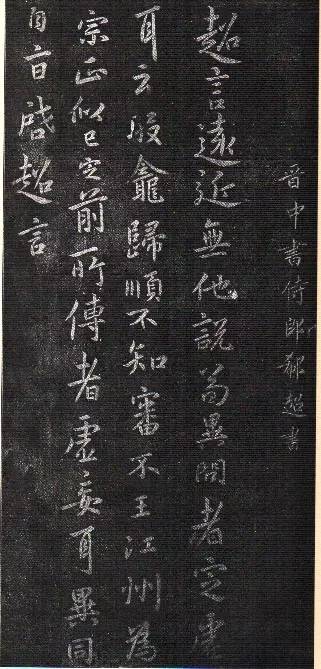 晋中書侍郎郗超書
超言遠近無他說異問者定虛
耳云段龕歸順不知審不王江州為
宗正似已定前所傳者虛妄耳異同
自啓超言